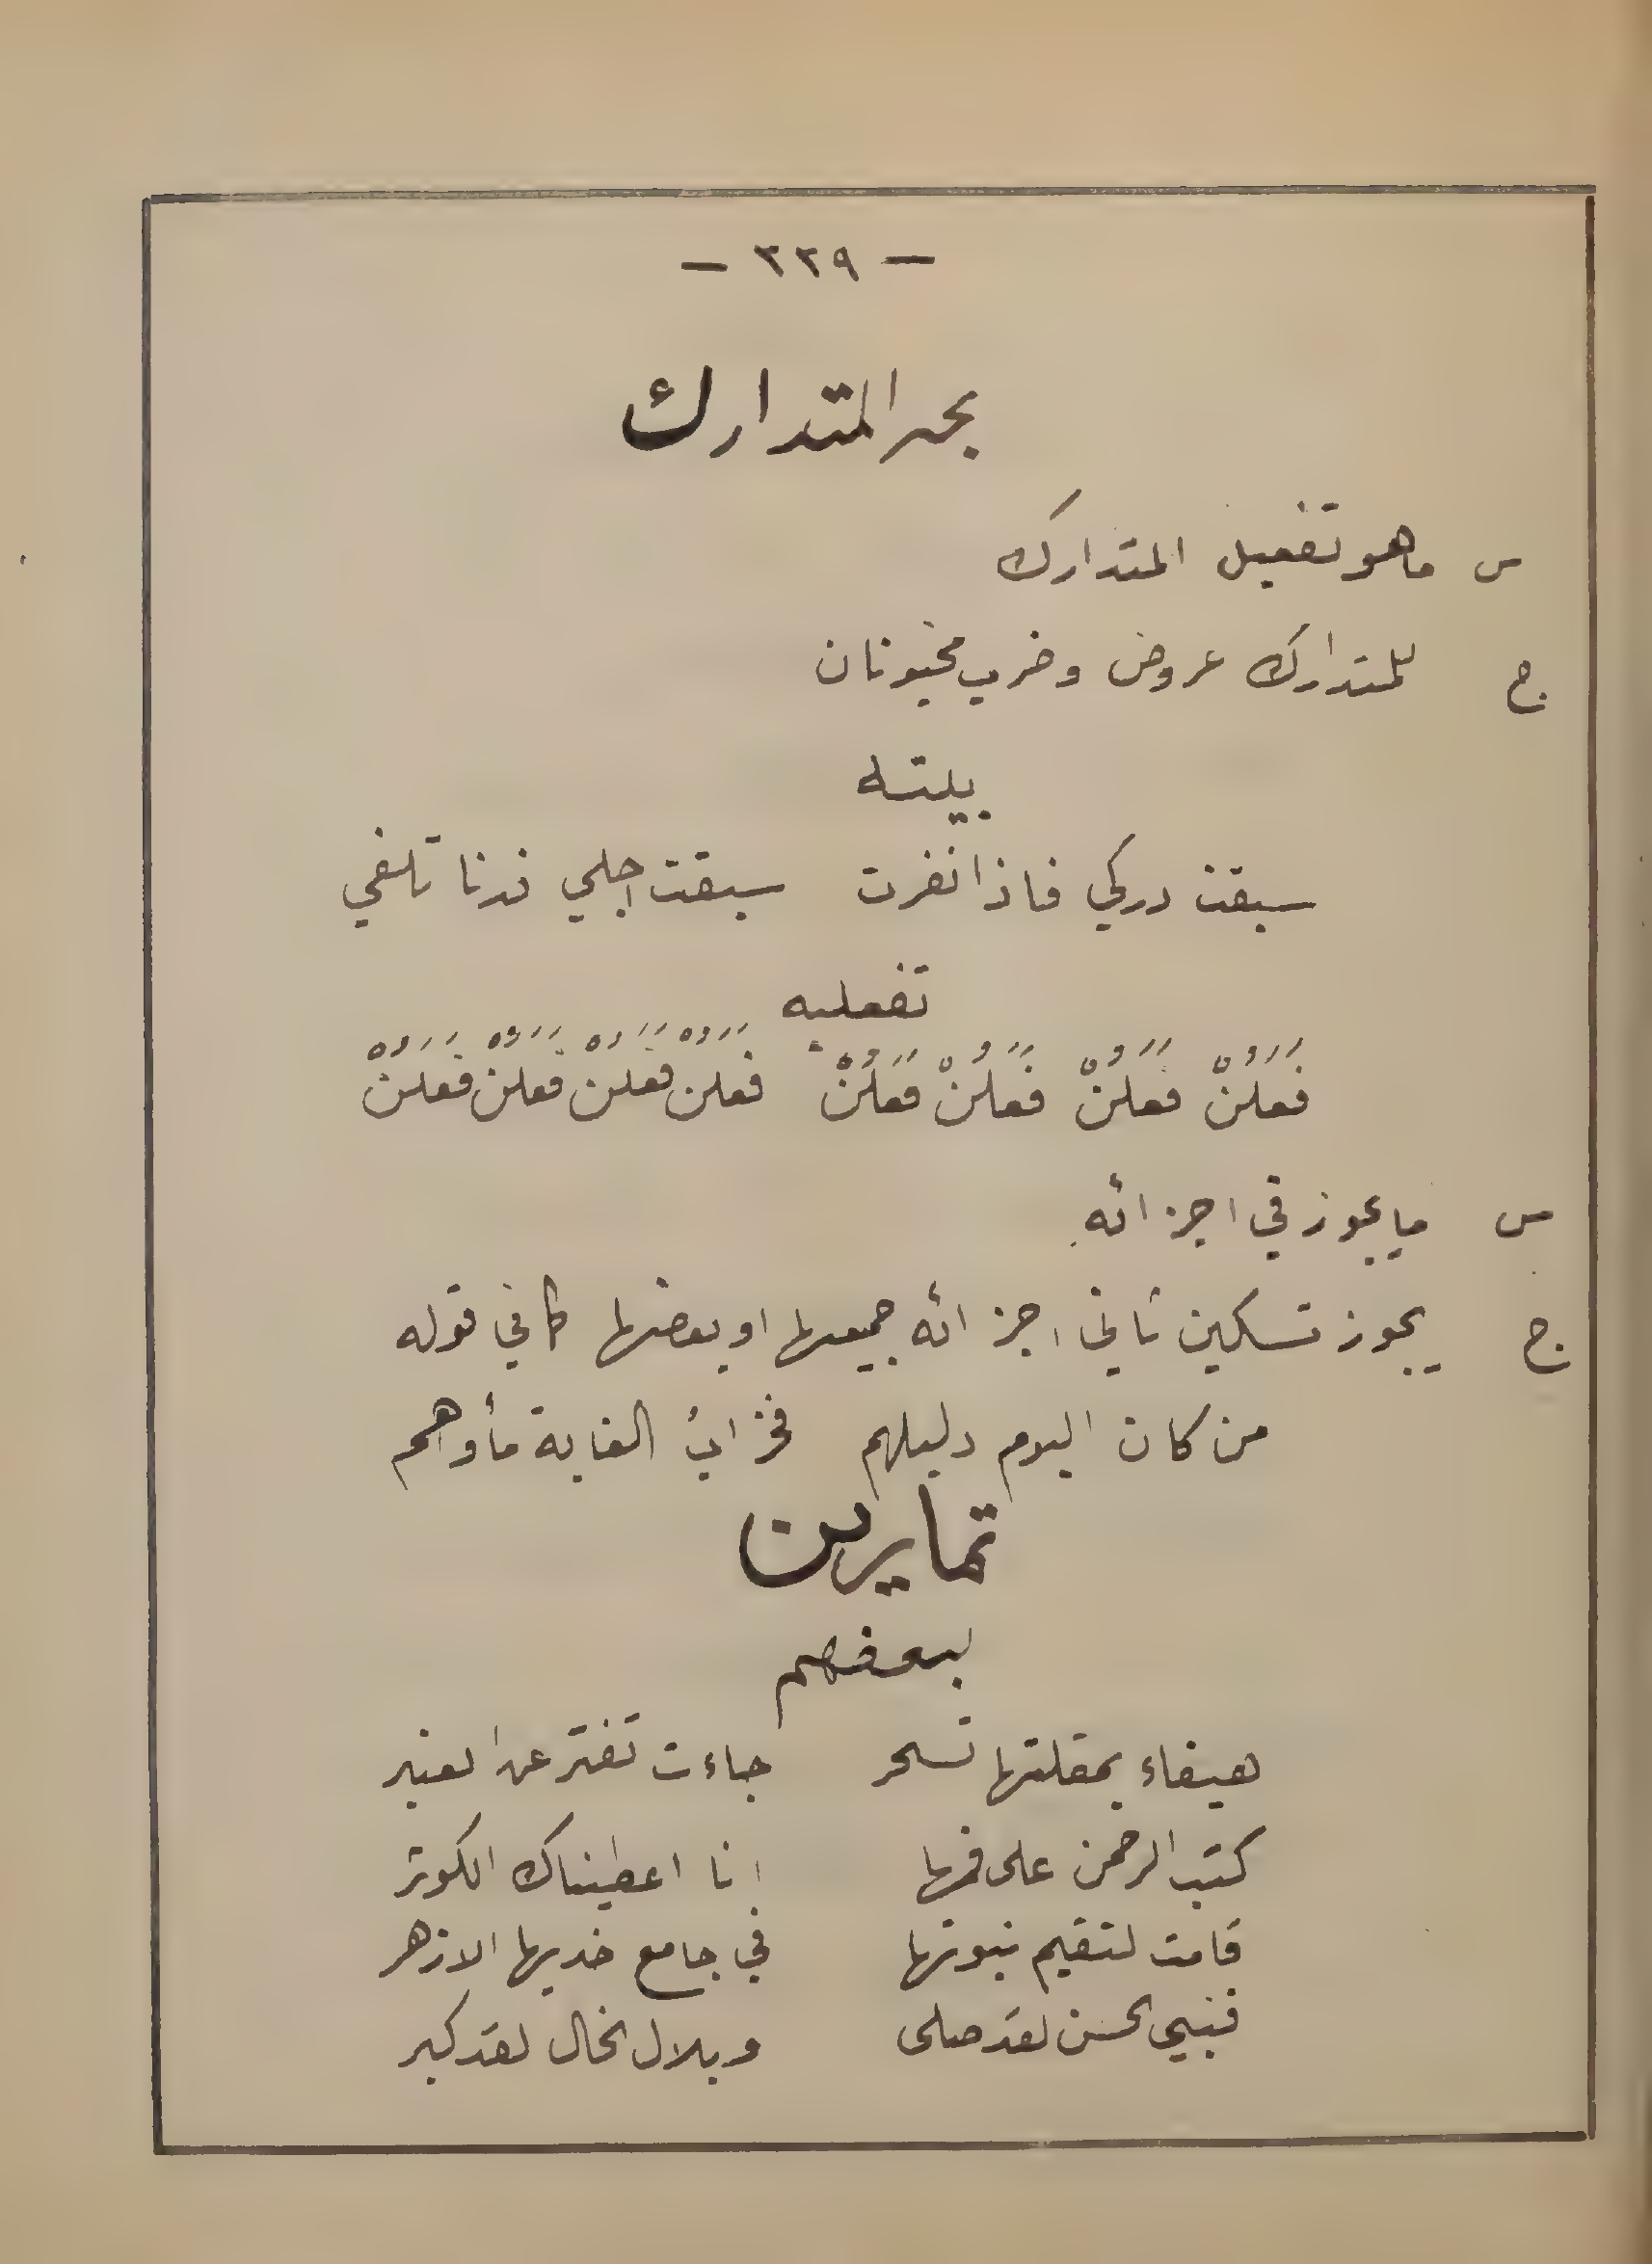 — ٣٣٩ —
بحر المتدارك
س ما هو تفعيل المتدارك
ج للمتدارك عروض وضرب مخبونان
بيته
سبقت دركي فاذا نفرت سبقت اجلي فدنا تلفي
تفعليه
فَعَلُنْ فَعَلُنْ فَعَلُنْ فَعَلُنْ فَعَلُنْ فَعَلُنْ فَعَلُنْ فَعَلُنْ
س ما يجوز في اجزائه
ج يجوز تسكين ثاني اجزائه جميعها او بعضها كما في قوله
من كان اليوم دليلهم فخرابُ الغابة مأواهم
تمارين
لبعضهم
هيفاء بمقلتها تسحر جاءت تفتر عن العنبر
كتب الرحمن على فمها انا اعطيناك الكوثر
قامت لتقيم نبوتها في جامع خديها الازهر
فنبي الحسن لقد صلى وبلال الخال لقد كبر